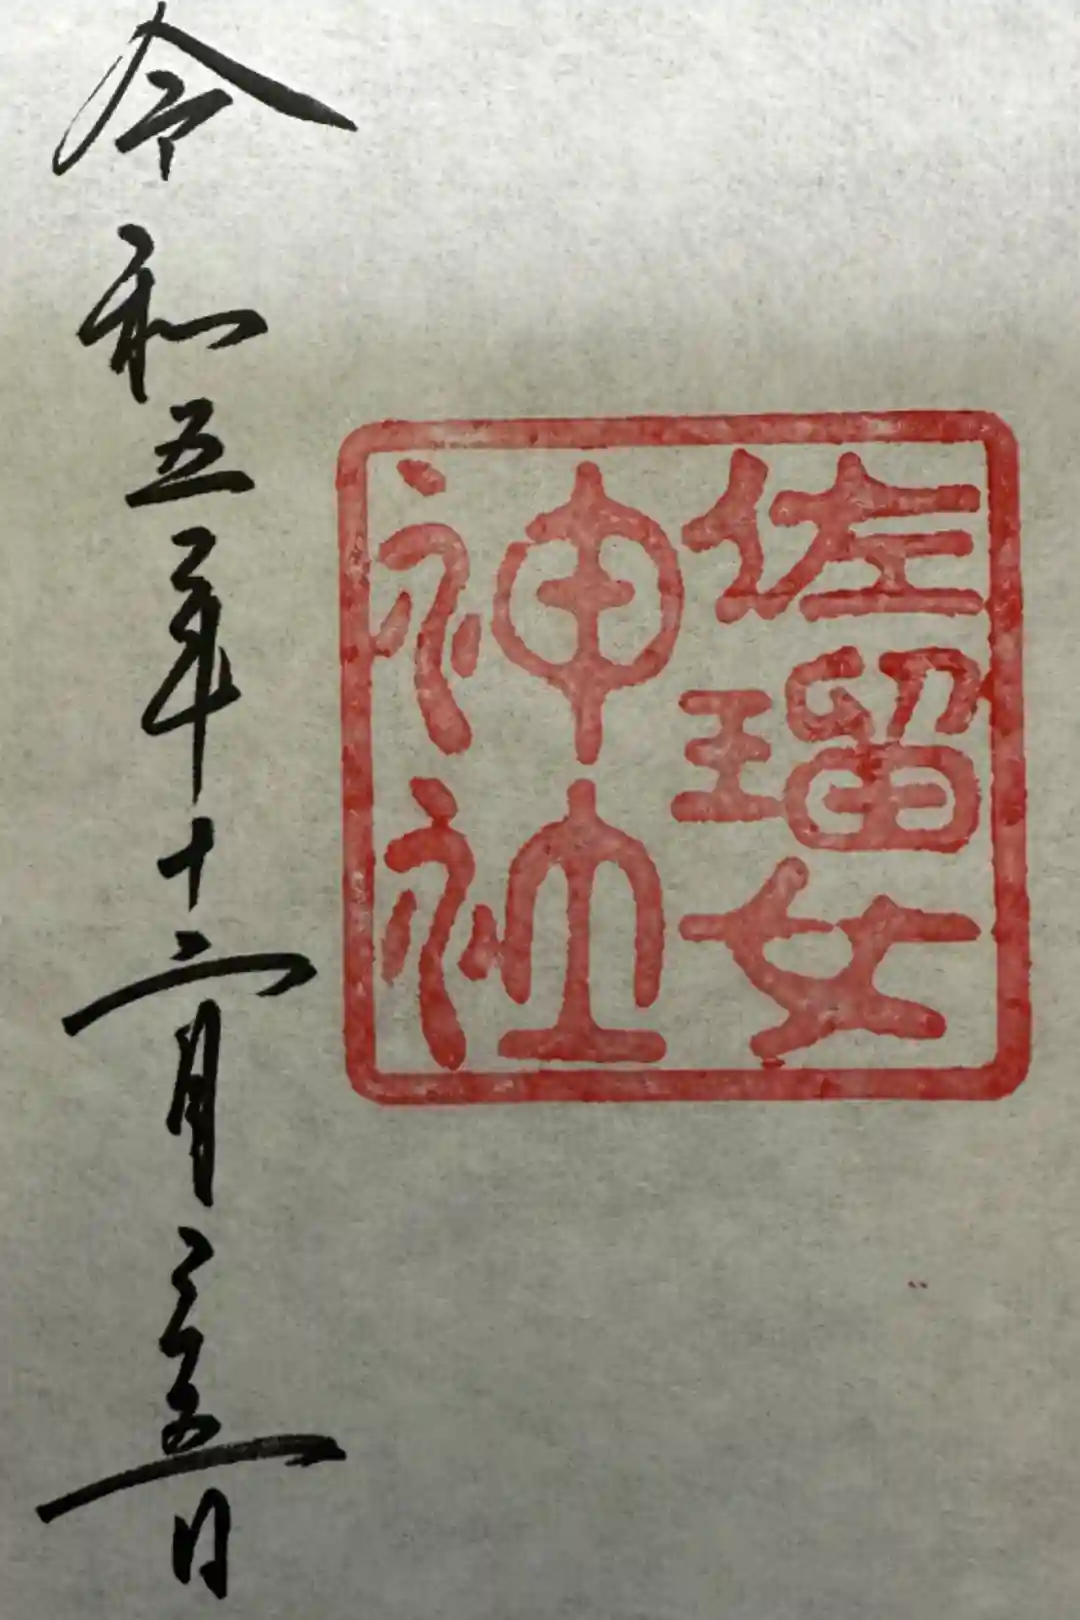 佐瑠女
神社
令和五年十二月日